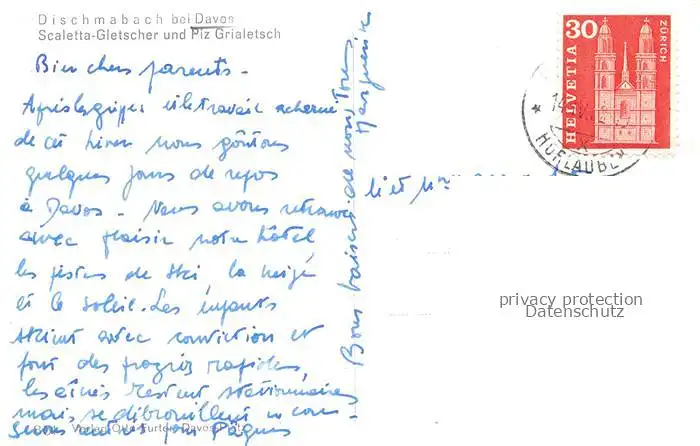 Dischmabach bei Davos
Scaletta-Gletscher und Piz Grialetsch
Bien chers parents -
Après la grippe et le travail acharné
de cet hiver nous goûtons
quelques jours de repos
à Davos - Nous avons retrouvé
avec plaisir notre hôtel
les pistes de ski la neige
et le soleil. Les enfants
skient avec conviction et
font des progrès rapides,
les aînés restent stationnaires
mais se débrouillent
Pâques
Bons baisers de nous Tous
Marguerite
HELVETIA
30
ZÜRICH
HORLAUBEN
M et Mme
privacy protection
Datenschutz
Verlag Otto Furter, Davos-Platz